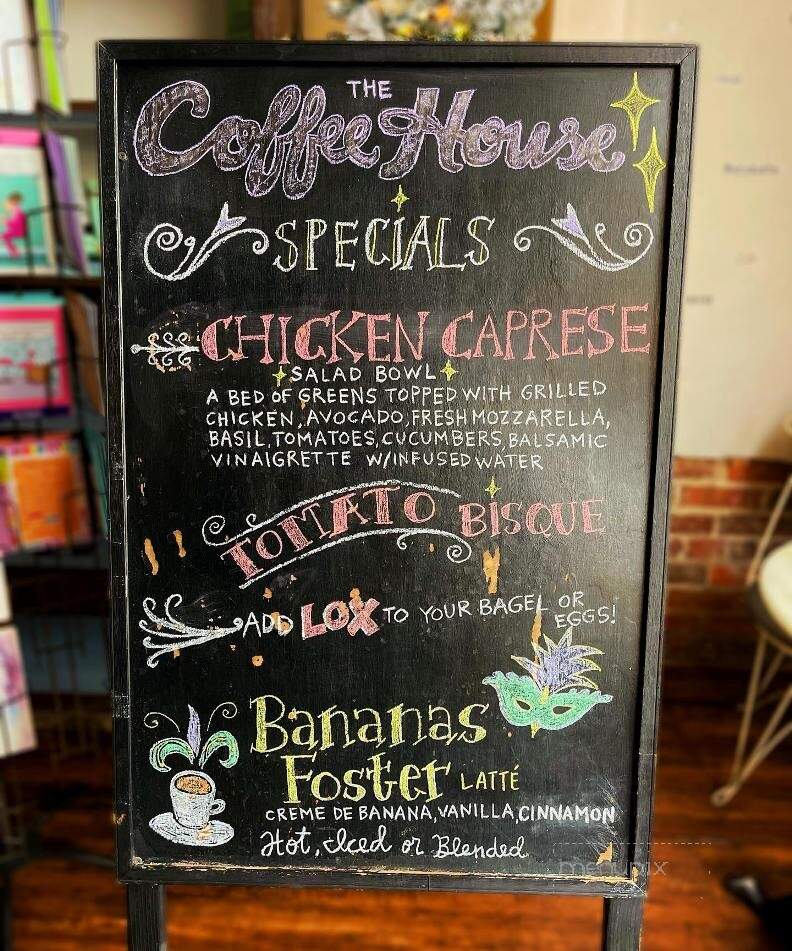 THE
Coffee House
SPECIALS
CHICKEN CAPRESE
SALAD BOWL
A BED OF GREENS TOPPED WITH GRILLED
CHICKEN, AVOCADO, FRESH MOZZARELLA,
BASIL, TOMATOES, CUCUMBERS, BALSAMIC
VINAIGRETTE W/INFUSED WATER
TOMATO BISQUE
ADD LOX TO YOUR BAGEL OR
EGGS!
Bananas
Foster LATTÉ
CREME DE BANANA, VANILLA, CINNAMON
Hot, Iced or Blended